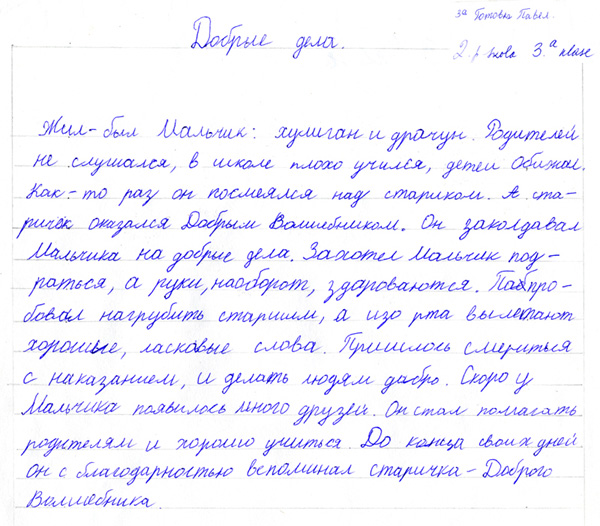 3а Готовка Павел.
Добрые дела.
3.а класс
Жил-был Мальчик: хулиган и драчун. Родителей
не слушался, в школе плохо учился, детей обижал.
Как-то раз он посмеялся над стариком. А ста-
ричек оказался Добрым Волшебником. Он заколдавал
Мальчика на добрые дела. Захотел Мальчик под-
раться, а руки, наоборот, здароваются. Папро-
бовал нагрубить старшим, а изо рта вылетают
хорошые, ласковые слова. Пришлось смериться
с наказанием, и делать людям дабро. Скоро у
Мальчика появилось много друзей. Он стал помагать
родителям и хорошо учиться. До конца своих дней
он с благодарностью вспоминал старичка - Доброго
Волшебника.